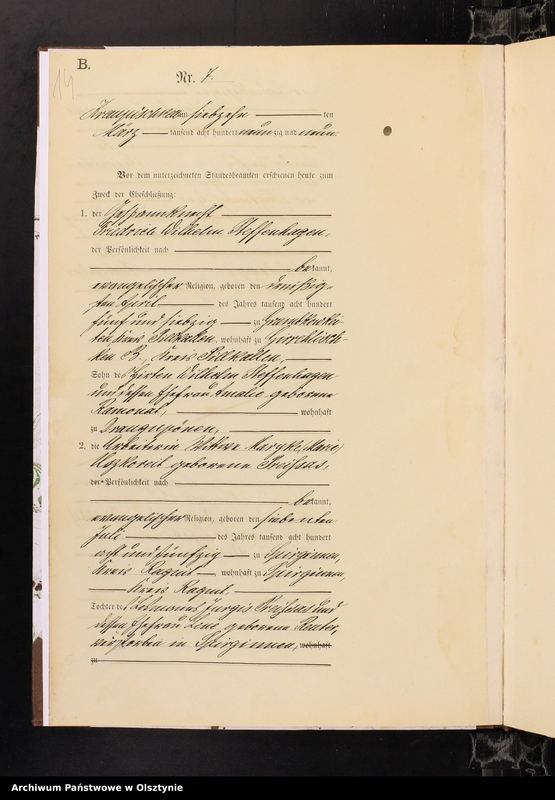 B.
14
Nr. 7.
am siebzehn ten
März tausend acht hundert neunzig und neun.
Vor dem unterzeichneten Standesbeamten erschienen heute zum
Zweck der Eheschließung:
1. der
Friedrich Wilhelm Steffenhagen,
der Persönlichkeit nach
bekannt,
evangelischer Religion, geboren den dreißig-
sten April des Jahres tausend acht hundert
fünf und siebzig zu
Kreis Pillkallen, wohnhaft zu
B., Kreis Pillkallen,
Sohn des Hirten Wilhelm Steffenhagen
und dessen Ehefrau Amalie geborene
Ramonat, wohnhaft
zu
2. die Arbeiterin Wittwe Maryke (Marie)
geborene
der Persönlichkeit nach
bekannt,
evangelischer Religion, geboren den siebenten
Juli des Jahres tausend acht hundert
acht und fünfzig zu Spirginnen,
Kreis Ragnit wohnhaft zu Spirginnen,
Kreis Ragnit,
Tochter des Losmanns Jurgis und
dessen Ehefrau geborene Reuter,
verstorben in Spirginnen, wohnhaft
zu
Archiwum Państwowe w Olsztynie